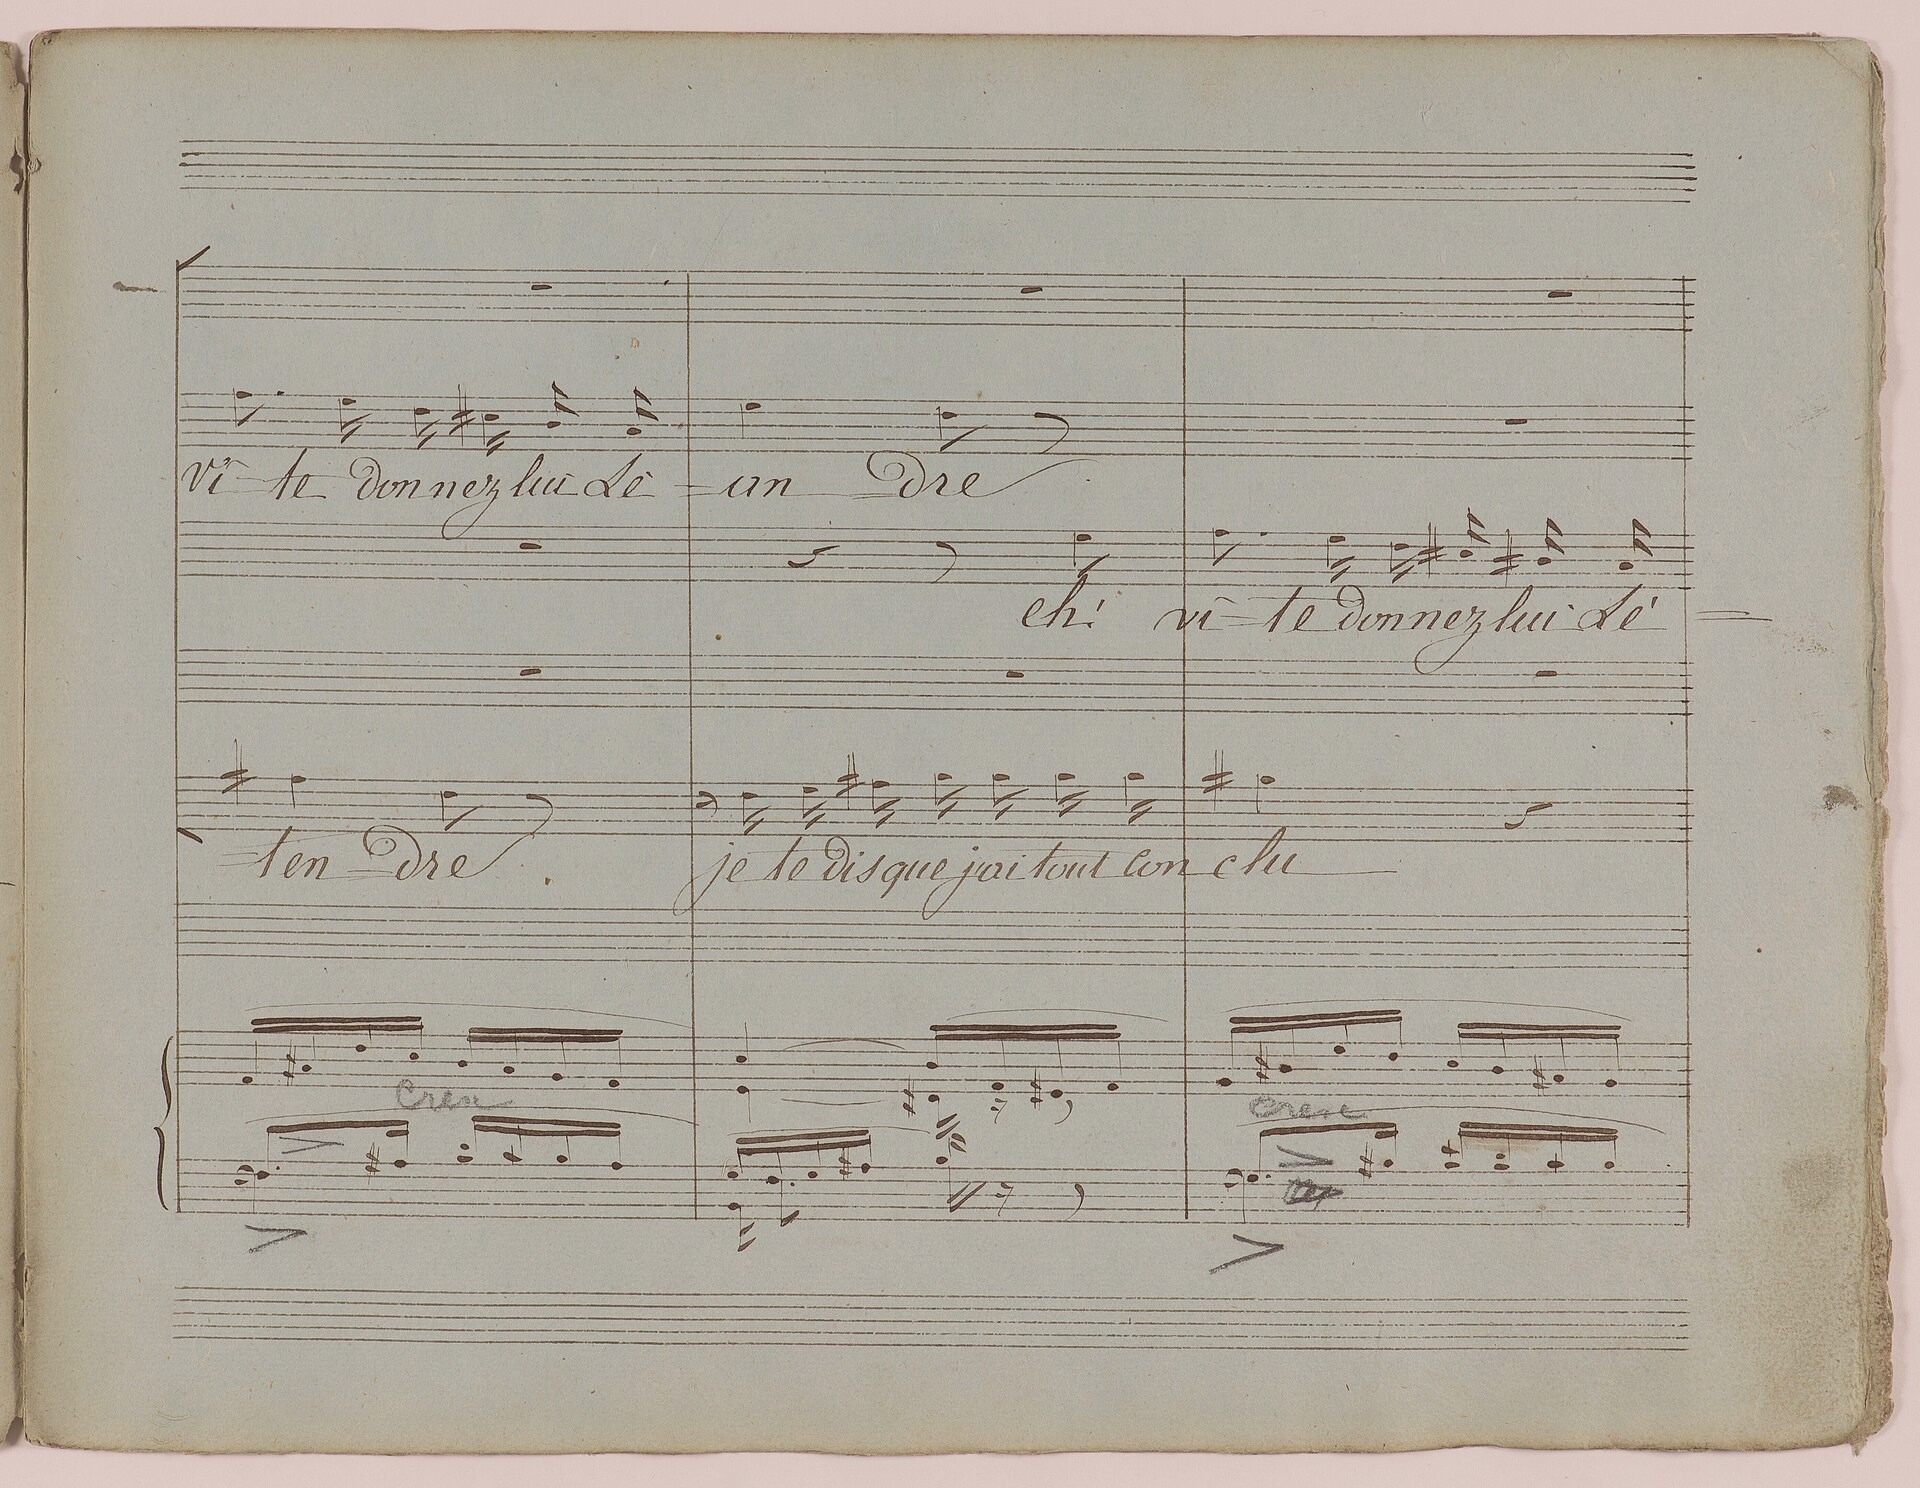 vi - te donnez lui Lé - an - dre
eh! vi - te donnez lui Lé -
- ten - dre je te dis que j'ai tout con clu
Cresc
Cresc